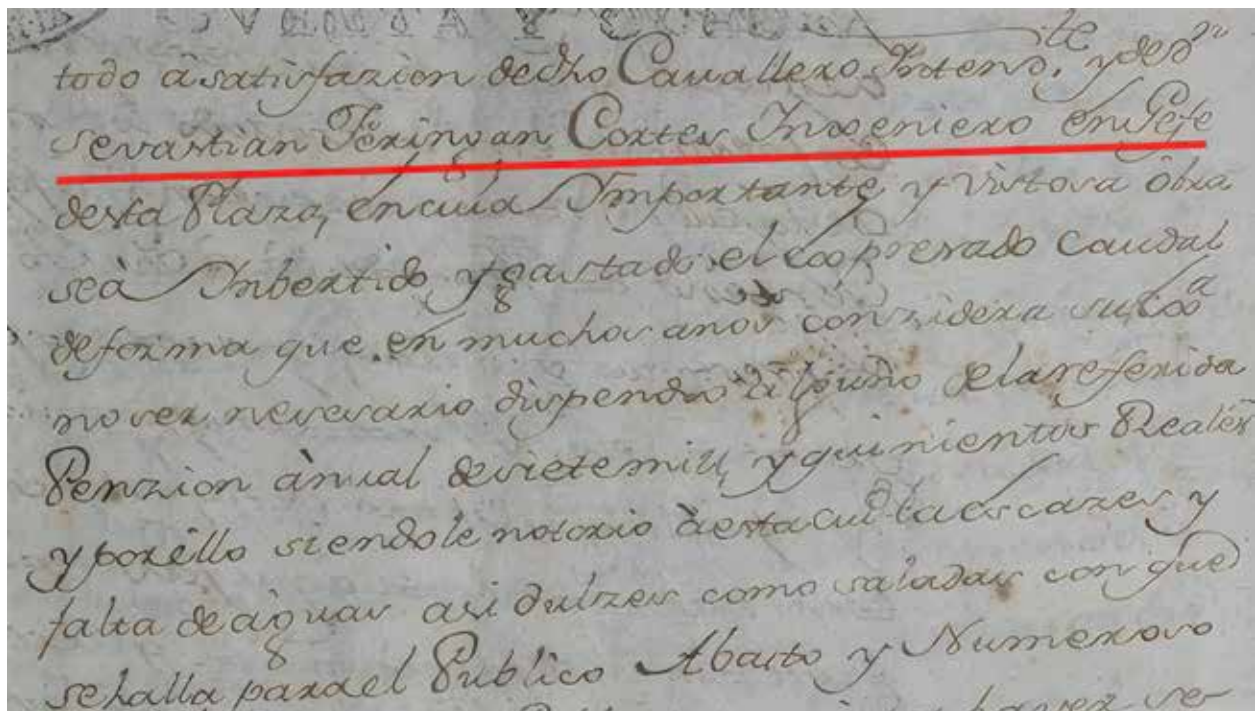 todo à satisfazion de dho Cauallero Intend.te y de dn
sevastian Feringan Cortes Ingeniero en Gefe
desta Plaza, en cuia Importante y Vistosa obra
seà Inbertido y gastado el expresado Caudal
de forma que en muchos anos considera su
no ser nesesario dispendio alguno de la referida
Penzion ànual de siete mill, y quinientos Reales
y por ello siendole notorio à esta la escases y
falta de àguas asi dulzes como saladas con que
se halla para el Publico Abasto y Numeroso